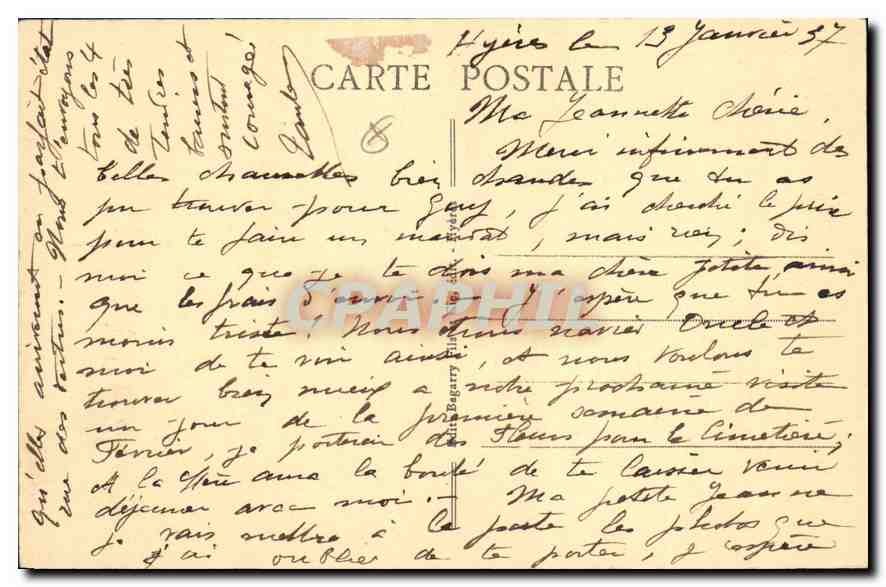 Hyères le 13 Janvier 37
CARTE POSTALE
Ma Jeannette chérie,
Merci infiniment des
belles chaussettes bien chaudes que tu as
pu trouver pour Guy, j'ai cherché le prix
pour te faire un mandat, mais rien; dis
moi ce que je te dois ma chère petite, ainsi
que les frais d'envoi. J'espère que tu es
moins triste! Nous étions navrés Oncle et
moi de te voir ainsi, et nous voulons te
trouver bien mieux à notre prochaine visite
un jour de la première semaine de
Février, je porterai des fleurs pour le Cimetière;
et la Mère aura la bonté de te laisser venir
déjeuner avec moi. - Ma petite Jeanne
je vais mettre à la poste les photos que
j'ai oublié de te porter, j'espère
qu'elles arriveront en parfait état
rue des Vertus. - Nous t'envoyons
tous les 4
de très
tendres
baisers et
surtout
courage!
Edit. Bagarry Fils - Hyères
CPAPHIL